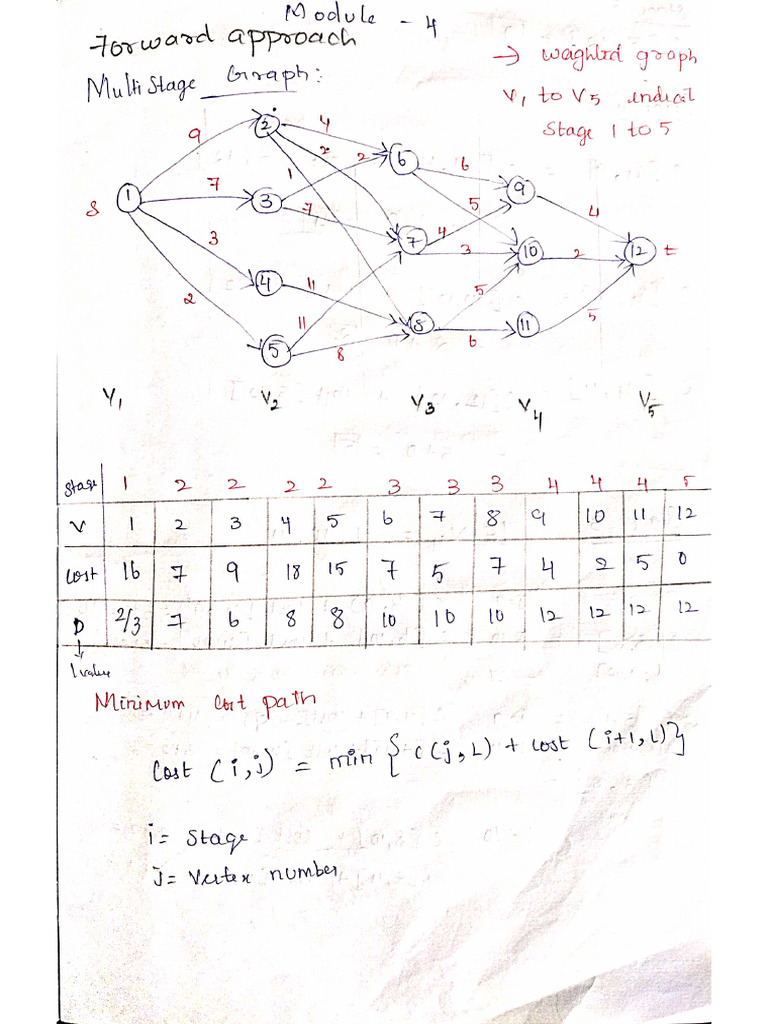 Module - 4
Forward approach
MultiStage Graph:
→ weighted graph
V1 to V5 indicat
Stage 1 to 5
9
2
4
2
1
6
2
6
9
7
3
7
5
4
S
1
7
4
3
10
2
12
t
3
4
11
5
2
11
8
11
5
5
8
6
V1 V2 V3 V4 V5
Stage 1 2 2 2 2 3 3 3 4 4 4 5
V 1 2 3 4 5 6 7 8 9 10 11 12
Cost 16 7 9 18 15 7 5 7 4 2 5 0
D 2/3 7 6 8 8 10 10 10 12 12 12 12
↓
l value
Minimum cost path
Cost (i,j) = min {c(j,L) + cost (i+1,L)}
i= Stage
J= Vertex number